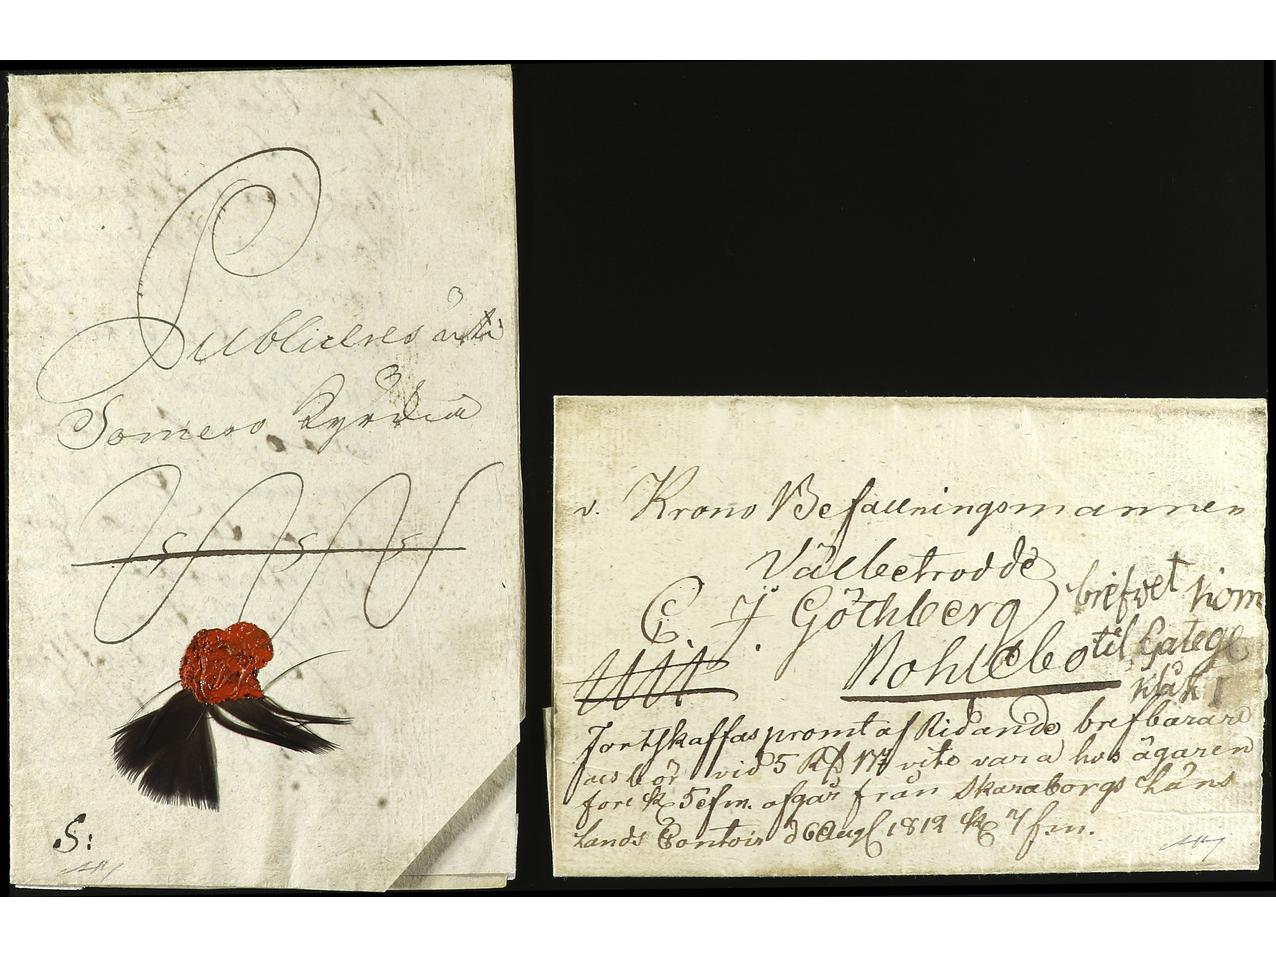 Publiceres uti
Somero Kyrckia
S:
v. Krono Befallningsmannen
Välbetrodde
C J Göthberg
Nohlebo
brefvet kom
til Gatege
klåk 1
fortskaffas promt af Ridande brefbärare
vid 5 vite vara hos ägaren
före k 5 efm. afgår från Skaraborgs Läns
Lands Contoir d 6 Augl 1812 k 7 fm.